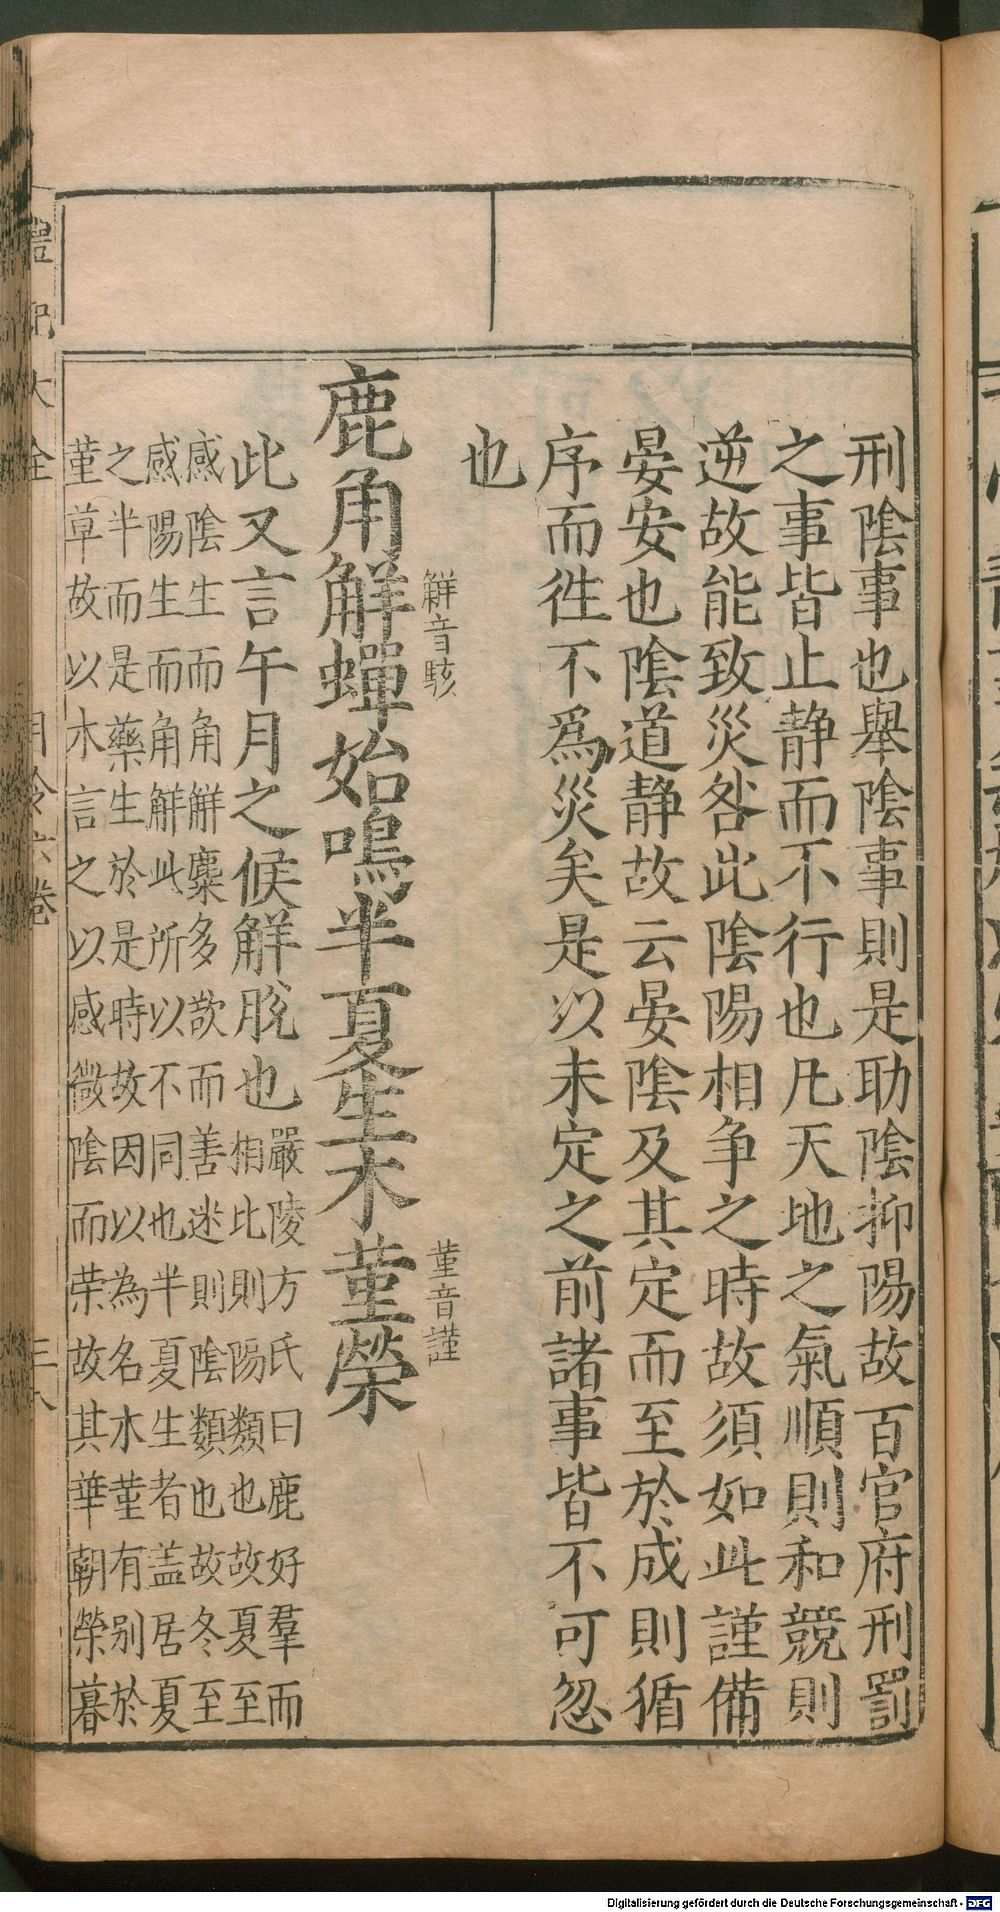 刑陰事也舉陰事則是助陰抑陽故百官府刑罰
之事皆止静而不行也凡天地之氣順則和競則
逆故能致災咎此陰陽相爭之時故須如此謹備
晏安也陰道静故云晏陰及其定而至於成則循
序而徃不爲災矣是以未定之前諸事皆不可忽
也
觧音駭
菫音謹
鹿角觧蟬始鳴半夏生木菫榮
此又言午月之候觧脫也
嚴陵方氏曰鹿好羣而
相比則陽類也故夏至
感陰生而角觧麋多欲而善迷則陰類也故冬至
感陽生而角觧此所以不同也半夏生者盖居夏
之半而是藥生於是時故因以為名木菫有别於
菫草故以木言之以感微陰而荣故其華朝榮暮
禮記大全
月令六卷
Digitalisierung gefördert durch die Deutsche Forschungsgemeinschaft - DFG